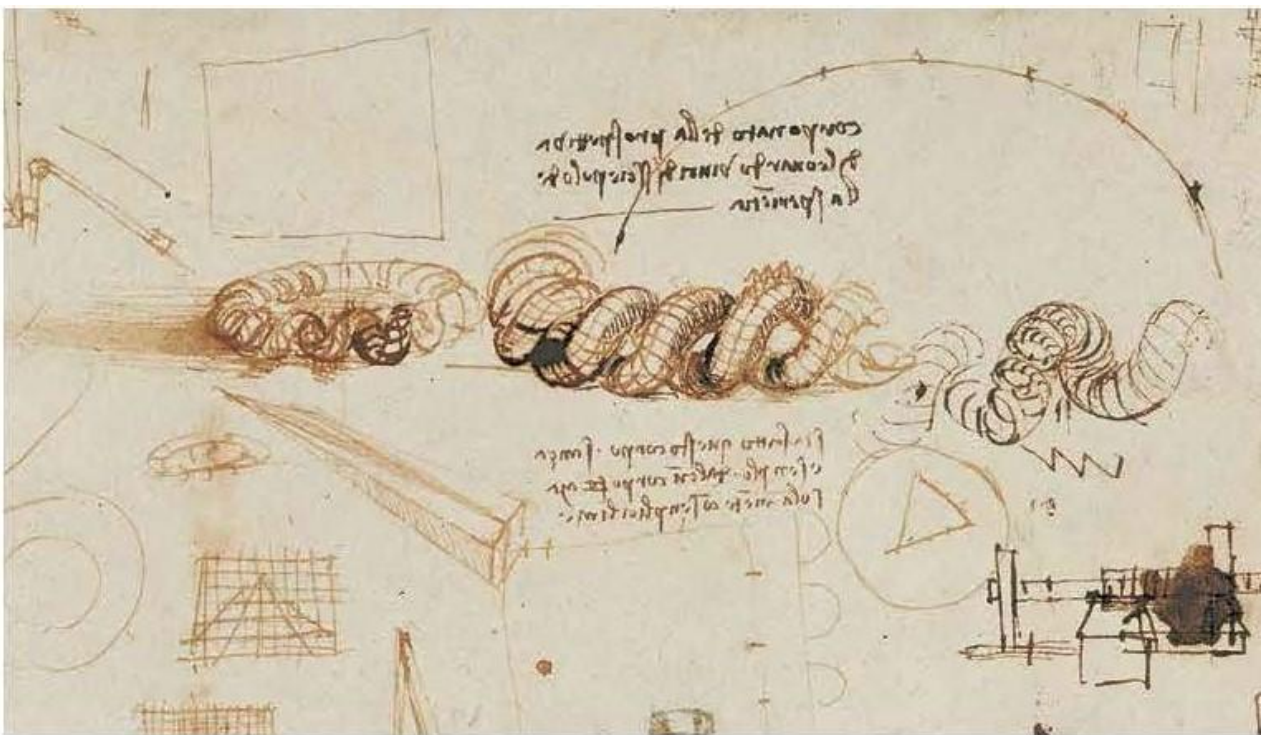 corpo nato della prospettiva
di leonardo vinci disciepolo de
lla sperietia
sia fatto questo corpo sanza
esemplo dalcu corpo ma
sola mete co semplici linie